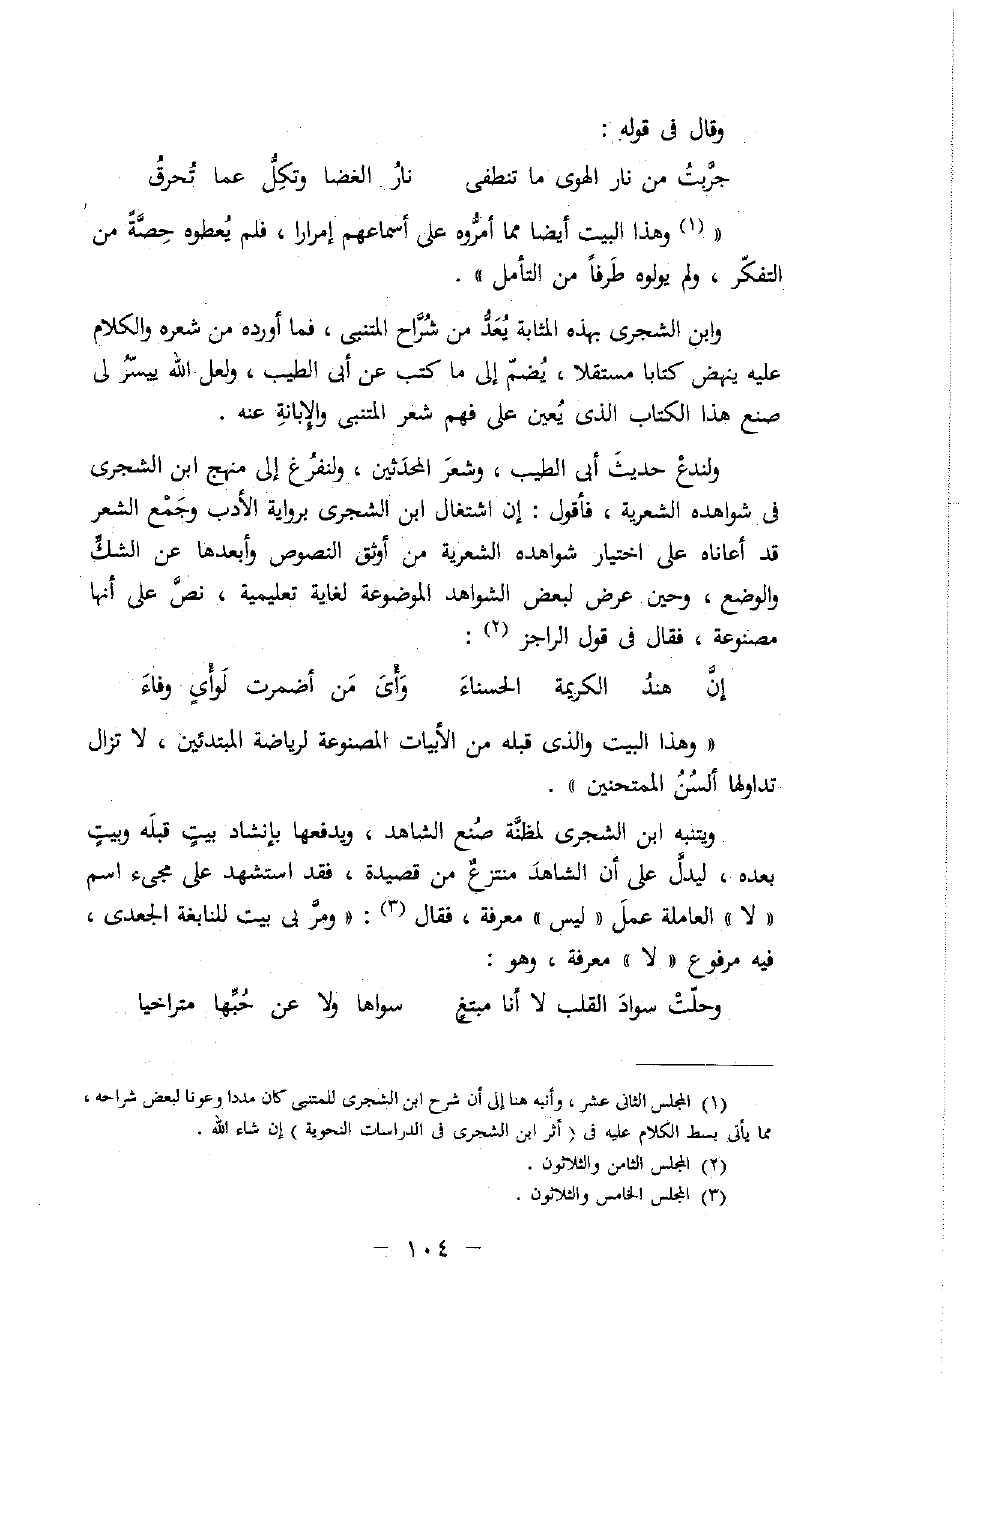 وقال فى قوله :
جرَّبتُ من نار الهوى ما تنطفى نارُ الغضا وتكِلُّ عما تُحرقُ
« (١) وهذا البيت أيضا مما أمرُّوه على أسماعهم إمرارا ، فلم يُعطوه حِصَّةً من
التفكّر ، ولم يولوه طَرفاً من التأمل » .
وابن الشجرى بهذه المثابة يُعَدُّ من شُرَّاح المتنبى ، فما أورده من شعره والكلام
عليه ينهض كتابا مستقلا ، يُضمّ إلى ما كتب عن أبى الطيب ، ولعل الله ييسّرُ لى
صنع هذا الكتاب الذى يُعين على فهم شعر المتنبى والإبانةِ عنه .
ولندعْ حديثَ أبى الطيب ، وشعرَ المحدَثين ، ولنفرُغ إلى منهج ابن الشجرى
فى شواهده الشعرية ، فأقول : إن اشتغال ابن الشجرى برواية الأدب وجَمْع الشعر
قد أعاناه على اختيار شواهده الشعرية من أوثق النصوص وأبعدها عن الشكِّ
والوضع ، وحين عرض لبعض الشواهد الموضوعة لغاية تعليمية ، نصَّ على أنها
مصنوعة ، فقال فى قول الراجز (٢) :
إنَّ هندُ الكريمة الحسناءَ وَأْىَ مَن أضمرت لَوأْىٍ وفاءَ
« وهذا البيت والذى قبله من الأبيات المصنوعة لرياضة المبتدئين ، لا تزال
تداولها ألسُنُ الممتحنين » .
ويتنبه ابن الشجرى لمظنَّة صُنع الشاهد ، ويدفعها بإنشاد بيتٍ قبلَه وبيتٍ
بعده ، ليدلَّ على أن الشاهدَ منتزعٌ من قصيدة ، فقد استشهد على مجىء اسم
« لا » العاملة عملَ « ليس » معرفة ، فقال (٣) : « ومرَّ بى بيت للنابغة الجعدى ،
فيه مرفوع « لا » معرفة ، وهو :
وحلّتْ سوادَ القلب لا أنا مبتغٍ سواها ولا عن حُبِّها متراخيا
(١) المجلس الثانى عشر ، وأنبه هنا إلى أن شرح ابن الشجرى للمتنبى كان مددا وعونا لبعض شراحه ،
مما يأتى بسط الكلام عليه فى ( أثر ابن الشجرى فى الدراسات النحوية ) إن شاء الله .
(٢) المجلس الثامن والثلاثون .
(٣) المجلس الخامس والثلاثون .
— ١٠٤ —